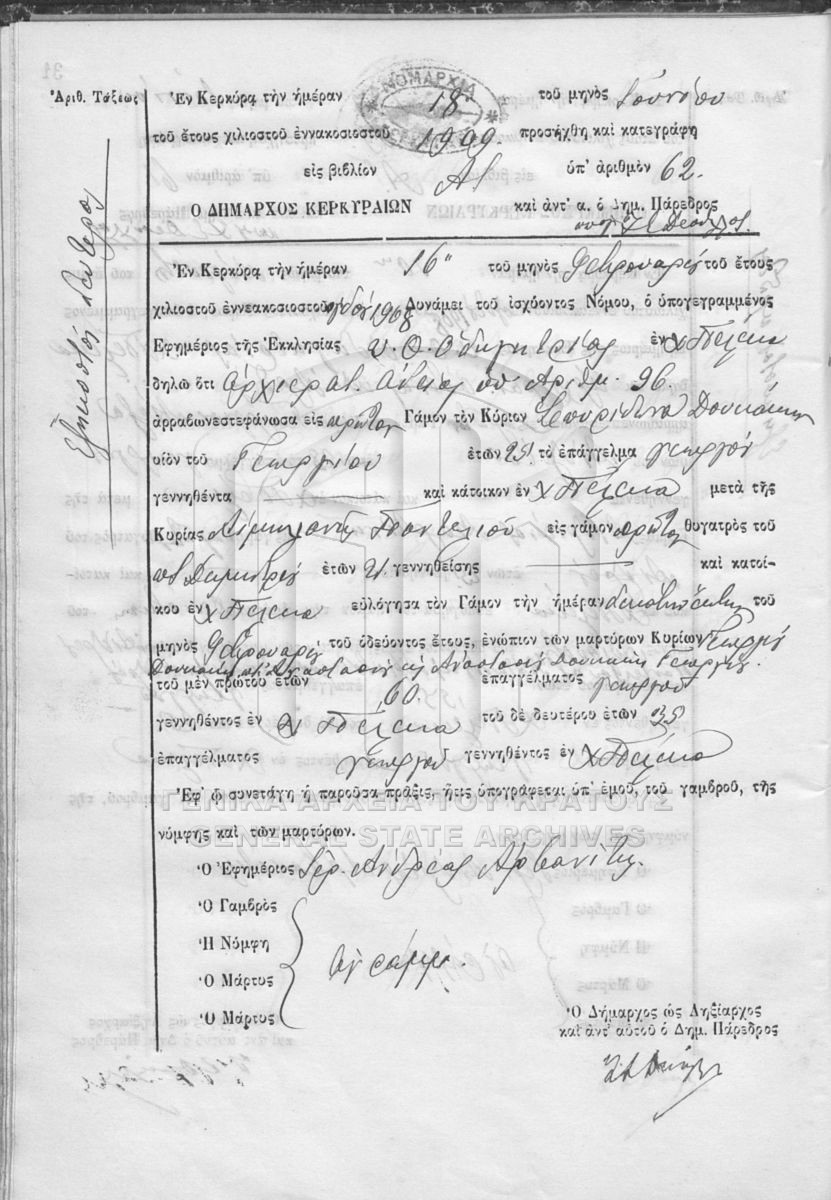 31
Ἀριθ. Τάξεως
Ἑξηκοστὸς δεύτερος
ΝΟΜΑΡΧΙΑ
Ἐν Κερκύρᾳ τὴν ἡμέραν 18 τοῦ μηνὸς Ἰουνίου
τοῦ ἔτους χιλιοστοῦ ἐννακοσιοστοῦ 1909. προσήχθη καὶ κατεγράφη
εἰς βιβλίον ὑπ' ἀριθμὸν 62.
Ο ΔΗΜΑΡΧΟΣ ΚΕΡΚΥΡΑΙΩΝ καὶ ἀντ' α. ὁ Δημ. Πάρεδρος
Ἐν Κερκύρᾳ τὴν ἡμέραν 16 τοῦ μηνὸς Φεβρουαρίου τοῦ ἔτους
χιλιοστοῦ ἐννεακοσιοστοῦ ὀγδόου 1908 Δυνάμει τοῦ ἰσχύοντος Νόμου, ὁ ὑπογεγραμμένος
Ἐφημέριος τῆς Ἐκκλησίας Υ. Θ. Ὁδηγητρίας ἐν χ Πέλεκα
δηλῶ ὅτι ἀρχιερατ. ἀδείας ὑπ. Ἀριθμ. 96.
ἀρραβωνεστεφάνωσα εἰς πρῶτον Γάμον τὸν Κύριον Σπυρίδωνα Δουκάκην
υἱὸν τοῦ Γεωργίου ἐτῶν 25 τὸ ἐπάγγελμα γεωργὸν
γεννηθέντα καὶ κάτοικον ἐν χ Πέλεκα μετὰ τῆς
Κυρίας Παντελιοῦ εἰς γάμον πρῶτον θυγατρὸς τοῦ
ποτ Δημητρίου ἐτῶν 21 γεννηθείσης καὶ κατοί-
κου ἐν χ Πέλεκα εὐλόγησα τὸν Γάμον τὴν ἡμέραν δεκάτην ἕκτην τοῦ
μηνὸς Φεβρουαρίου τοῦ ὁδεύοντος ἔτους, ἐνώπιον τῶν μαρτύρων Κυρίων Γεωργίου
Δουκάκη Ἀναστασίου κ Ἀναστασίου Δουκάκη Γεωργίου.
τοῦ μὲν πρώτου ἐτῶν 60. ἐπαγγέλματος γεωργοῦ
γεννηθέντος ἐν χ Πέλεκα τοῦ δὲ δευτέρου ἐτῶν 35
ἐπαγγέλματος γεωργοῦ γεννηθέντος ἐν χ Πέλεκα
Ἐφ' ᾧ συνετάγη ἡ παροῦσα πρᾶξις, ἥτις ὑπογράφεται ὑπ' ἐμοῦ, τοῦ γαμβροῦ, τῆς
ΓΕΝΙΚΑ ΑΡΧΕΙΑ ΤΟΥ ΚΡΑΤΟΥΣ
νύμφης καὶ τῶν μαρτύρων.
GENERAL STATE ARCHIVES
Ὁ Ἐφημέριος Ἱερ. Ἀνδρέας Ἀρβανίτης.
Ὁ Γαμβρὸς
Ἡ Νύμφη
Ὁ Μάρτυς
Ὁ Μάρτυς
ἀγράμμ.
Ὁ Δήμαρχος ὡς Ληξίαρχος
καὶ ἀντ' αὐτοῦ ὁ Δημ. Πάρεδρος